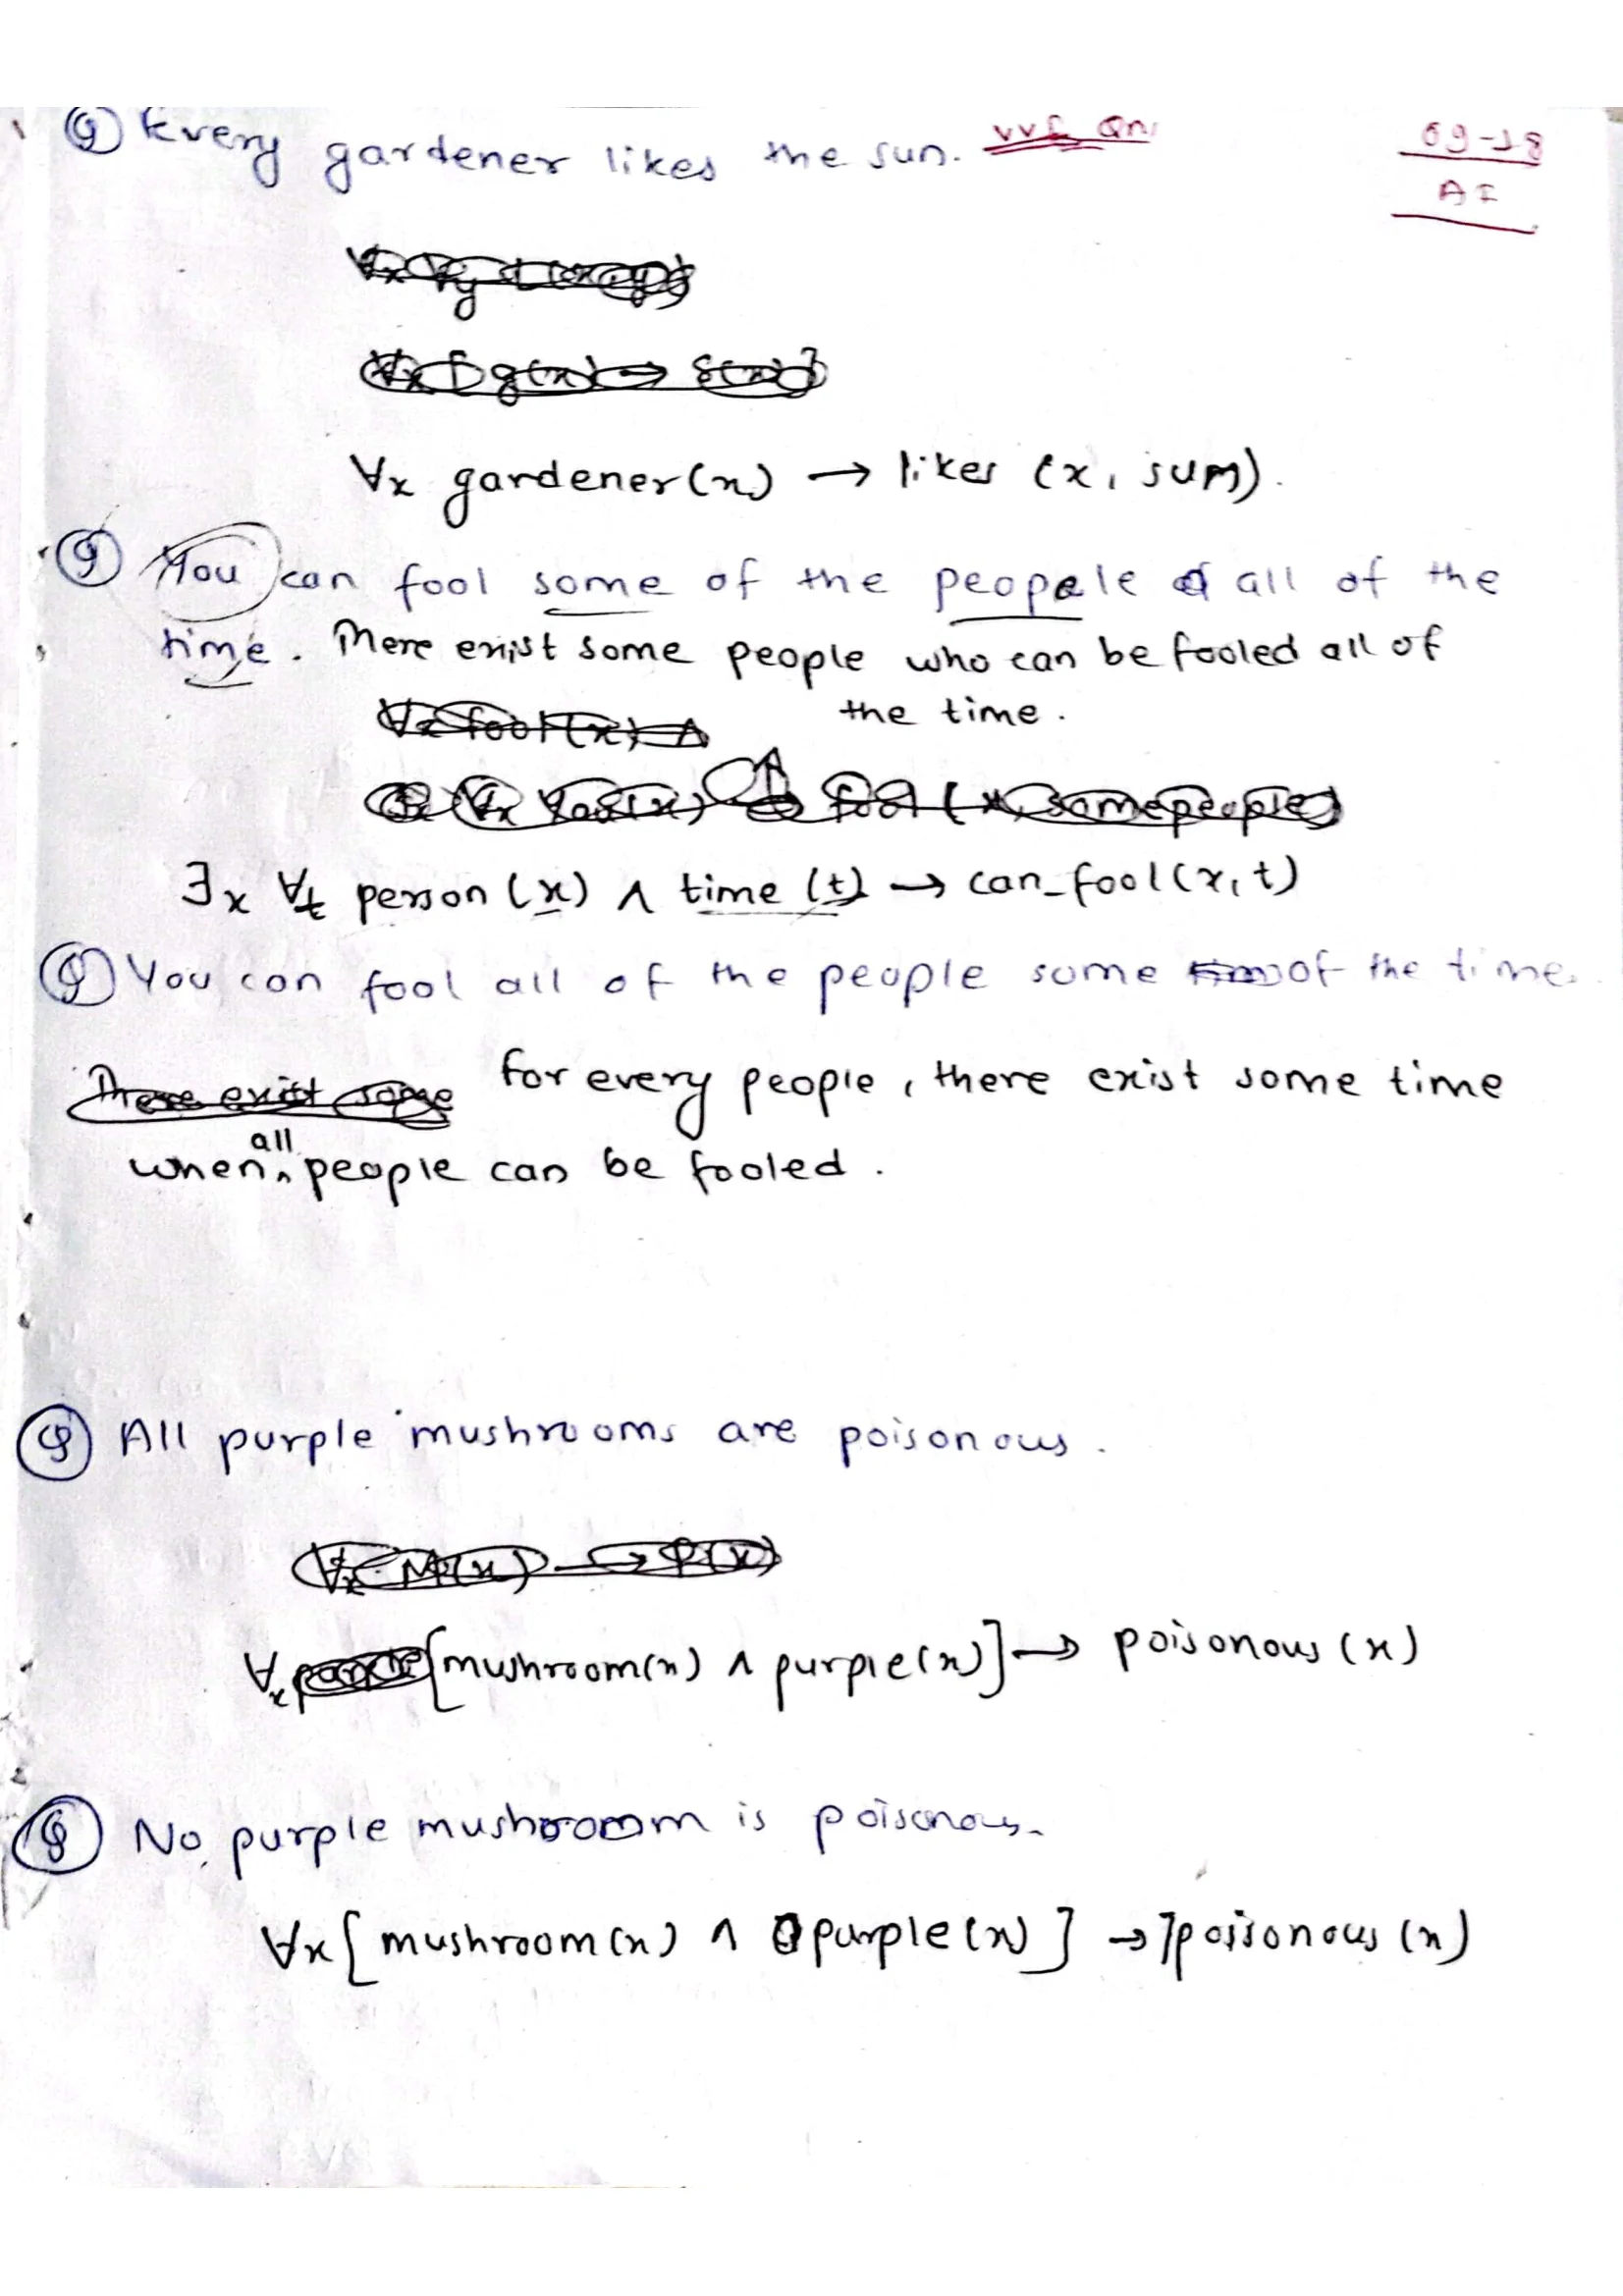 Q Every gardener likes the sun. VVI Qn.
09-18
AI
∀x gardener(x) → likes (x, sum).
Q You can fool some of the peopele of all of the
time. There exist some people who can be fooled all of
the time.
∃x ∀t person (x) ∧ time (t) → can_fool(x,t)
Q You can fool all of the people some of the time.
For every people, there exist some time
when all people can be fooled.
Q All purple mushrooms are poisonous.
∀x [mushroom(x) ∧ purple(x)] → poisonous (x)
Q No purple mushroom is poisonous.
∀x [mushroom(x) ∧ purple(x)] → ⅂poisonous (x)